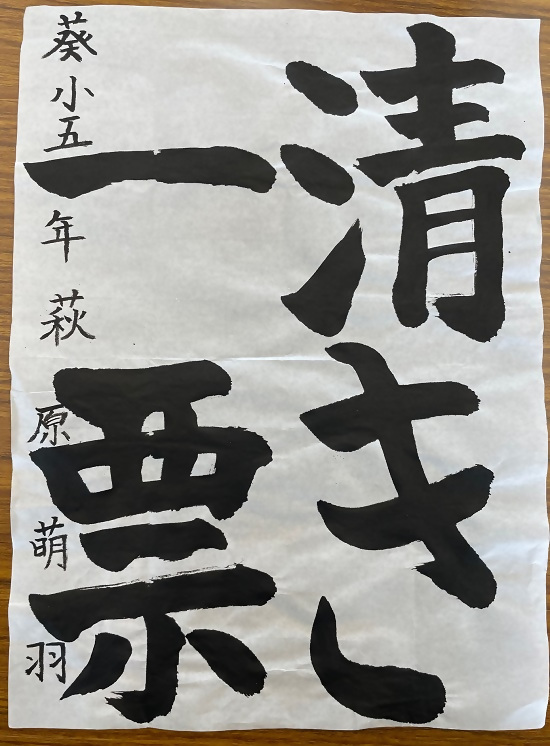 清き
一票
葵小五年萩原萌羽